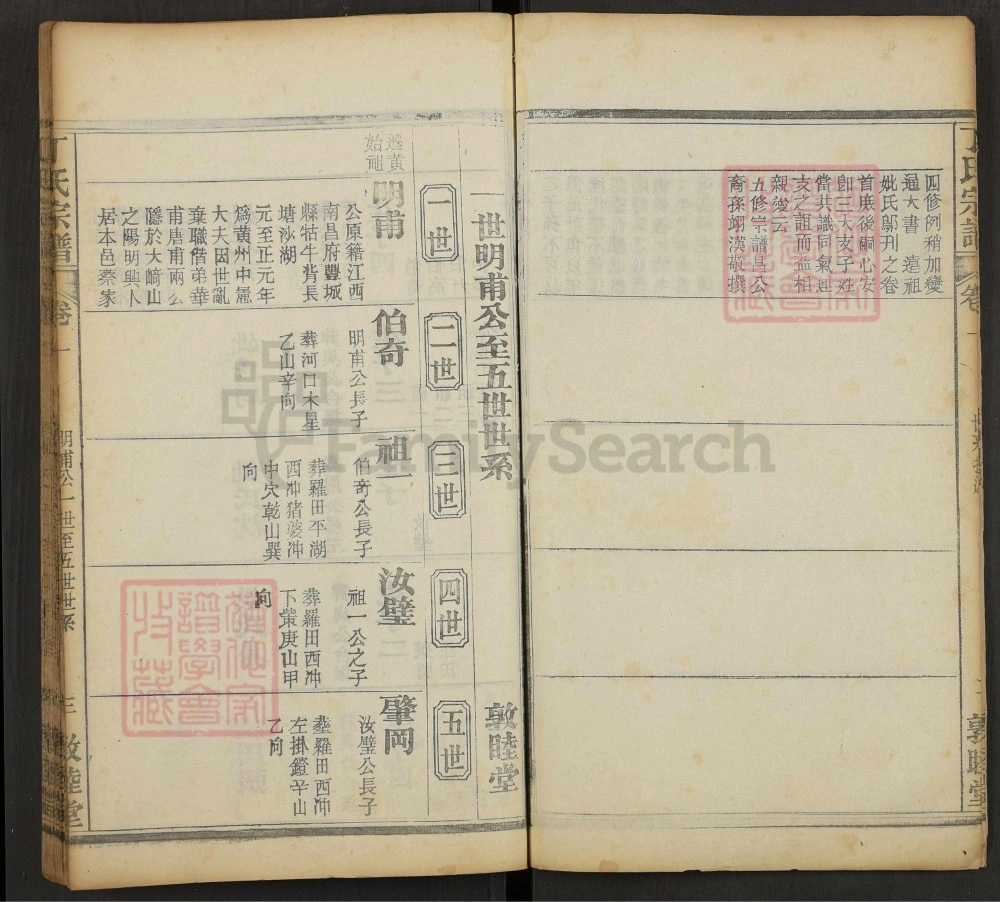 四修例稍加變
通大書 遠祖
妣氏鄔刋之卷
首庶後嗣心安
卽三大支子姓
當共識同氣連
支之誼而益相
親愛云
五修宗譜昌公
裔孫翊漢敬撰
敦睦堂
一世明甫公至五世世系
敦睦堂
一世
二世
三世
四世
五世
遷黃
始祖
明甫
公原籍江西
南昌府豐城
縣牯牛背長
塘沙湖
元至正元年
爲黃州中憲
大夫因世亂
棄職偕弟華
甫唐甫兩公
隱於大崎山
之陽明興卜
居本邑蔡家
伯奇
明甫公長子
葬河口木星
乙山辛向
祖一
伯奇公長子
葬羅田平湖
西冲猪婆冲
中穴乾山巽
向
汝璧
祖一公之子
葬羅田西冲
下棠庚山甲
向
肇岡
汝璧公長子
葬羅田西冲
左掛鐙辛山
乙向
丁氏宗譜
卷一
明甫公一世至五世世系
三
敦睦堂
FamilySearch